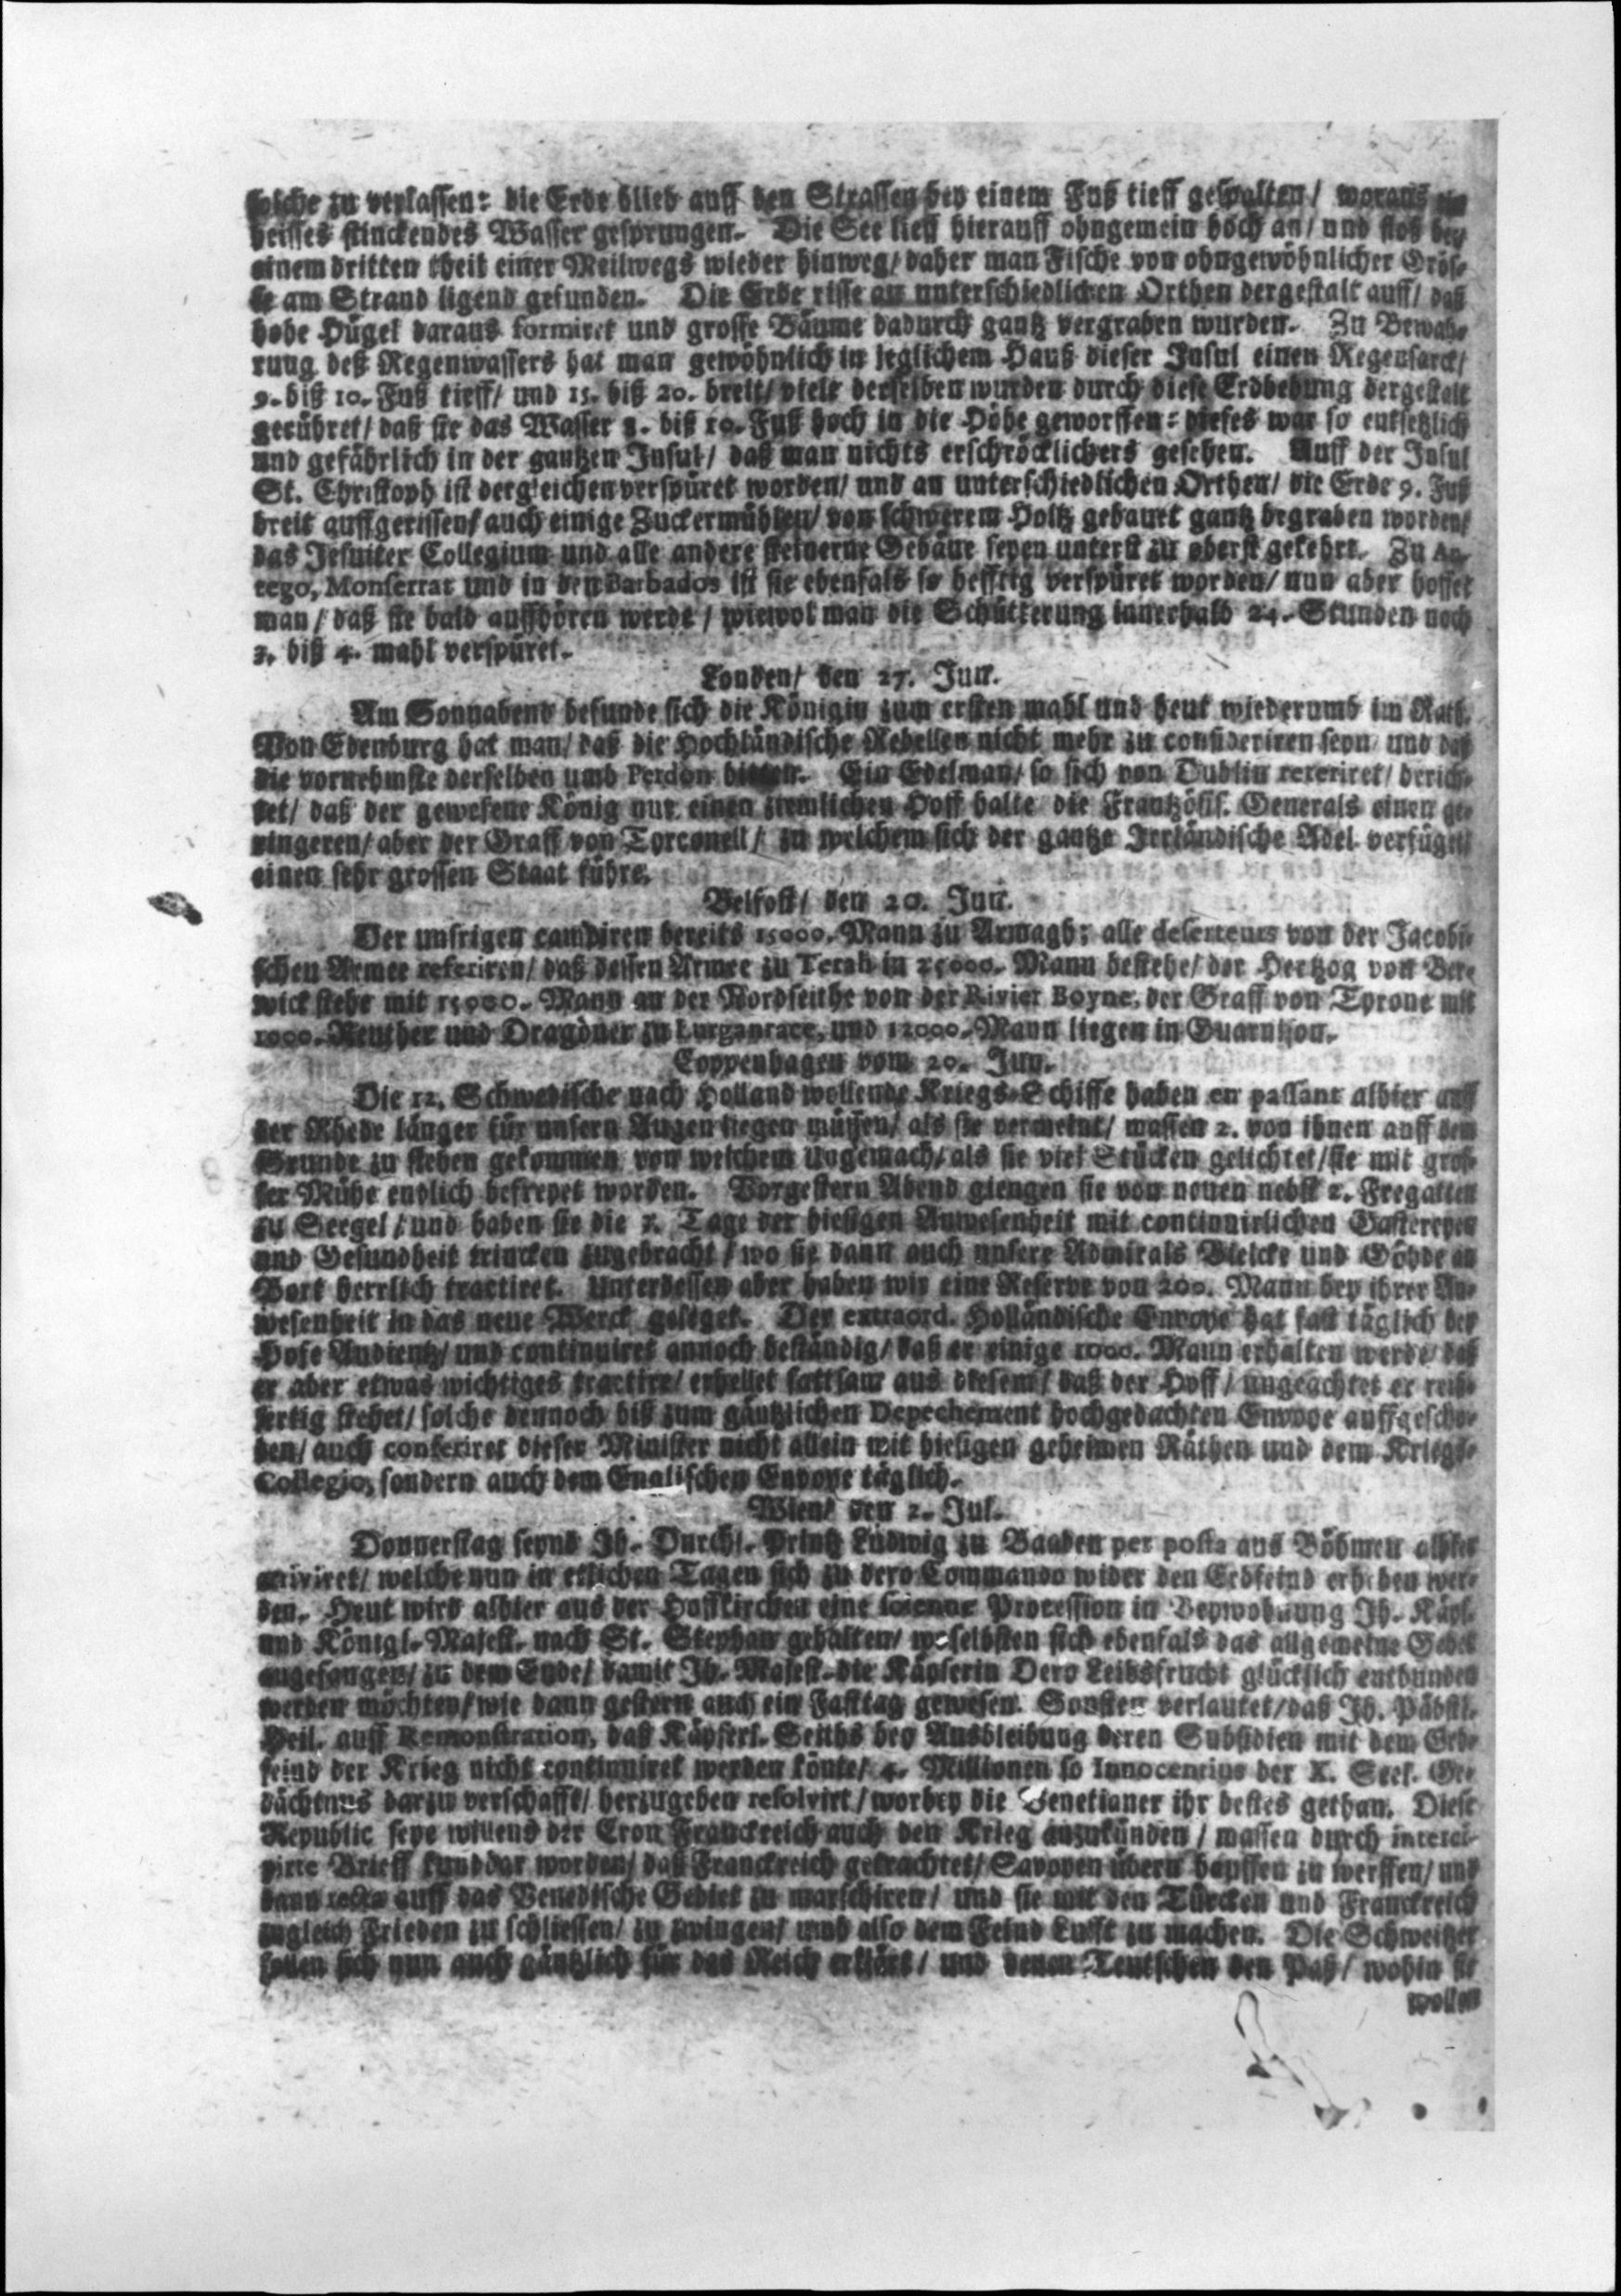 solche zu verlassen: die Erde blieb auff den Strassen bey einem Fuß tieff gespalten/ woraus ein
heisses stinckendes Wasser gesprungen. Die See lieff hierauff ohngemein hoch an/ und floß bey
einem dritten theil einer Meilwegs wieder hinweg/ daher man Fische von ohngewöhnlicher Grös-
se am Strand ligend gefunden. Die Erde risse an unterschiedlichen Orthen dergestalt auff/ daß
hohe Hügel daraus formiret und grosse Bäume dadurch gantz vergraben wurden. Zu Bewah-
rung deß Regenwassers hat man gewöhnlich in jeglichem Hauß dieser Insul einen Regensarck/
9. biß 10. Fuß tieff/ und 15. biß 20. breit/ viele derselben wurden durch diese Erdbebung dergestalt
gerühret/ daß sie das Wasser 8. biß 10. Fuß hoch in die Höhe geworffen: dieses war so entsetzlich
und gefährlich in der gantzen Insul/ daß man nichts erschröcklichers gesehen. Auff der Insul
St. Christoph ist dergleichen verspüret worden/ und an unterschiedlichen Orthen/ die Erde 9. Fuß
breit auffgerissen/ auch einige Zuckermühlen/ von schwerem Holtz gebauet gantz begraben worden/
das Jesuiter Collegium und alle andere steinerne Gebäue seyen unterst zu oberst gekehrt. Zu An-
tego, Monserrat und in den Barbados ist sie ebenfals so hefftig verspüret worden/ nun aber hoffet
man/ daß sie bald auffhören werde/ wiewol man die Schütterung innerhalb 24. Stunden noch
3. biß 4. mahl verspüret.
Londen/ den 27. Jun.
Am Sonnabend befunde sich die Königin zum ersten mahl und heut wiederumb im Rath.
Von Edenburg hat man/ daß die Hochländische Rebellen nicht mehr zu consideriren seyn/ und daß
die vornehmste derselben umb Perdon bitten. Ein Edelman/ so sich von Dublin reteriret/ berich-
tet/ daß der gewesene König nur einen ziemlichen Hoff halte die Frantzösis. Generals einen ge-
ringeren/ aber der Graff von Tyrconell/ zu welchem sich der gantze Irrländische Adel verfüget/
einen sehr grossen Staat führe.
Belfost/ den 20. Jun.
Der unsrigen campiren bereits 15000. Mann zu Armagh: alle deserteurs von der Jacobi-
schen Armee referiren/ daß dessen Armee zu Terah in 25000. Mann bestehe/ der Hertzog von Ber-
wick stehe mit 15000. Mann an der Nordseithe von der Rivier Boyne, der Graff von Tyrone mit
1000. Reuther und Dragoner zu und 12000. Mann liegen in Guarnizon.
Coppenhagen vom 20. Jun.
Die 12. Schwedische nach Holland wollende Kriegs-Schiffe haben en passant alhier auff
der Rhede länger für unsern Augen liegen müssen/ als sie vermeint/ massen 2. von ihnen auff dem
Grunde zu stehen gekommen von welchem Ungemach/ als sie viel Stücken gelichtet/ sie mit gros-
ser Mühe endlich befreyet worden. Vorgestern Abend giengen sie von neuen nebst 2. Fregatten
zu Seegel/ und haben sie die Tage der hiesigen Anwesenheit mit continuirlichen Gastereyen
und Gesundheit trincken zugebracht/ wo sie dann auch unsere Admirals Bielcke und
Bort herrlich tractiret. Unterdessen aber haben wir eine Reserve von 200. Mann bey ihrer An-
wesenheit in das neue Werck geleget. Der extraord. Holländische Envoye hat fast täglich bey
Hofe Audientz/ und continuiret annoch beständig/ daß er einige 1000. Mann erhalten werde/ daß
er aber etwas wichtiges tractire/ erhellet sattsam aus diesem/ daß der Hoff/ ungeachtet er reiß-
fertig stehet/ solche dennoch biß zum gäntzlichen Depechement hochgedachten Envoye auffgescho-
ben/ auch conferiret dieser Minister nicht allein mit hiesigen geheimen Räthen und dem Kriegs-
Collegio, sondern auch dem Englischen Envoye täglich.
Wien/ den 2. Jul.
Donnerstag seynd Ih. Durchl. Printz Ludwig zu Baaden per posta aus Böhmen alhier
arriviret/ welche nun in etlichen Tagen sich zu dero Commando wider den Erbfeind erheben wer-
den. Heut wird alhier aus der Hoffkirchen eine solenne Procession in Beywohnung Ih. Käys.
und Königl. Majest. nach St. Stephan gehalten/ woselbsten sich ebenfals das allgemeine Gebet
angefangen/ zu dem Ende/ damit Ih. Majest. die Käyserin Dero Leibsfrucht glücklich entbunden
werden möchten/ wie dann gestern auch ein Fasttag gewesen. Sonsten verlautet/ daß Ih. Päbstl.
Heil. auff Remonstration, daß Käyserl. Seiths bey Ausbleibung deren Subsidien mit dem Erb-
feind der Krieg nicht continuiret werden könte/ 4. Millionen so Innocentius der X. Seel. Ge-
dächtnus darzu verschafft/ herzugeben resolvirt/ worbey die Venetianer ihr bestes gethan. Diese
Republic seye willens der Cron Franckreich auch den Krieg anzukünden/ massen durch interci-
pirte Brieff kundbar worden/ daß Franckreich getrachtet/ Savoyen übern hauffen zu werffen/ und
dann recta auff das Venedische Gebiet zu marschiren/ und sie mit den Türcken und Franckreich
zugleich Frieden zu schliessen/ zu zwingen/ und also dem Feind Lufft zu machen. Die Schweitzer
sollen sich nun auch gäntzlich für das Reich erklärt/ und denen Teutschen den Paß/ wohin sie
wollen